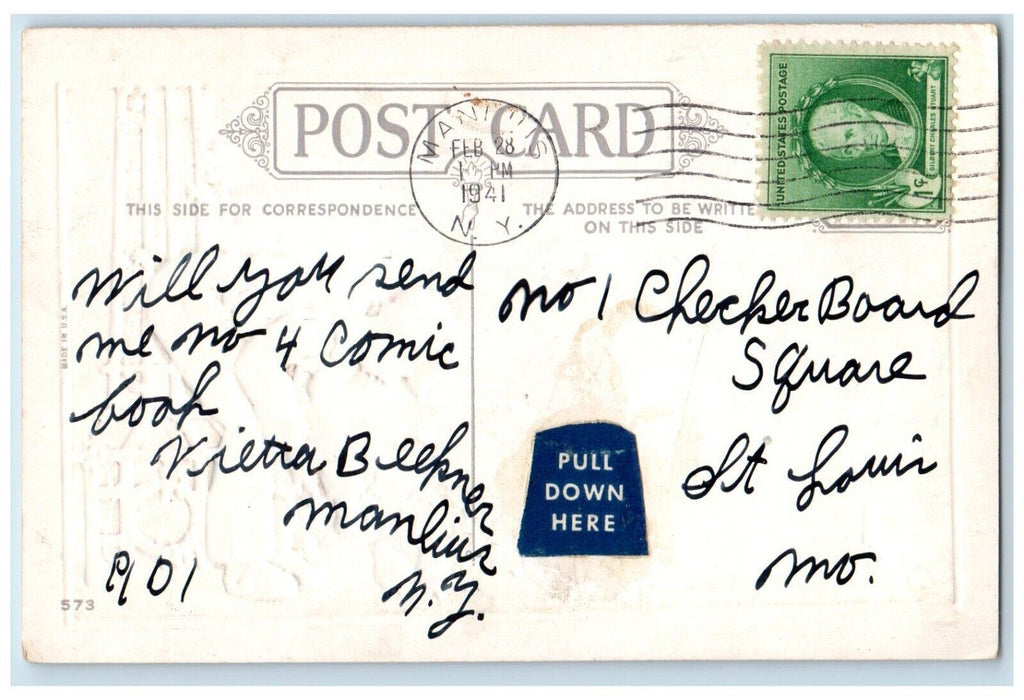 POST CARD
MANLIUS
FEB 28
PM
1941
N. Y.
UNITED STATES POSTAGE
GILBERT CHARLES STUART
1¢
THIS SIDE FOR CORRESPONDENCE
THE ADDRESS TO BE WRITTE
ON THIS SIDE
MADE IN U.S.A.
Will you send
me no 4 Comic
book
Manlius
N.Y.
573
no 1 Checker Board
Square
St Louis
mo.
PULL
DOWN
HERE